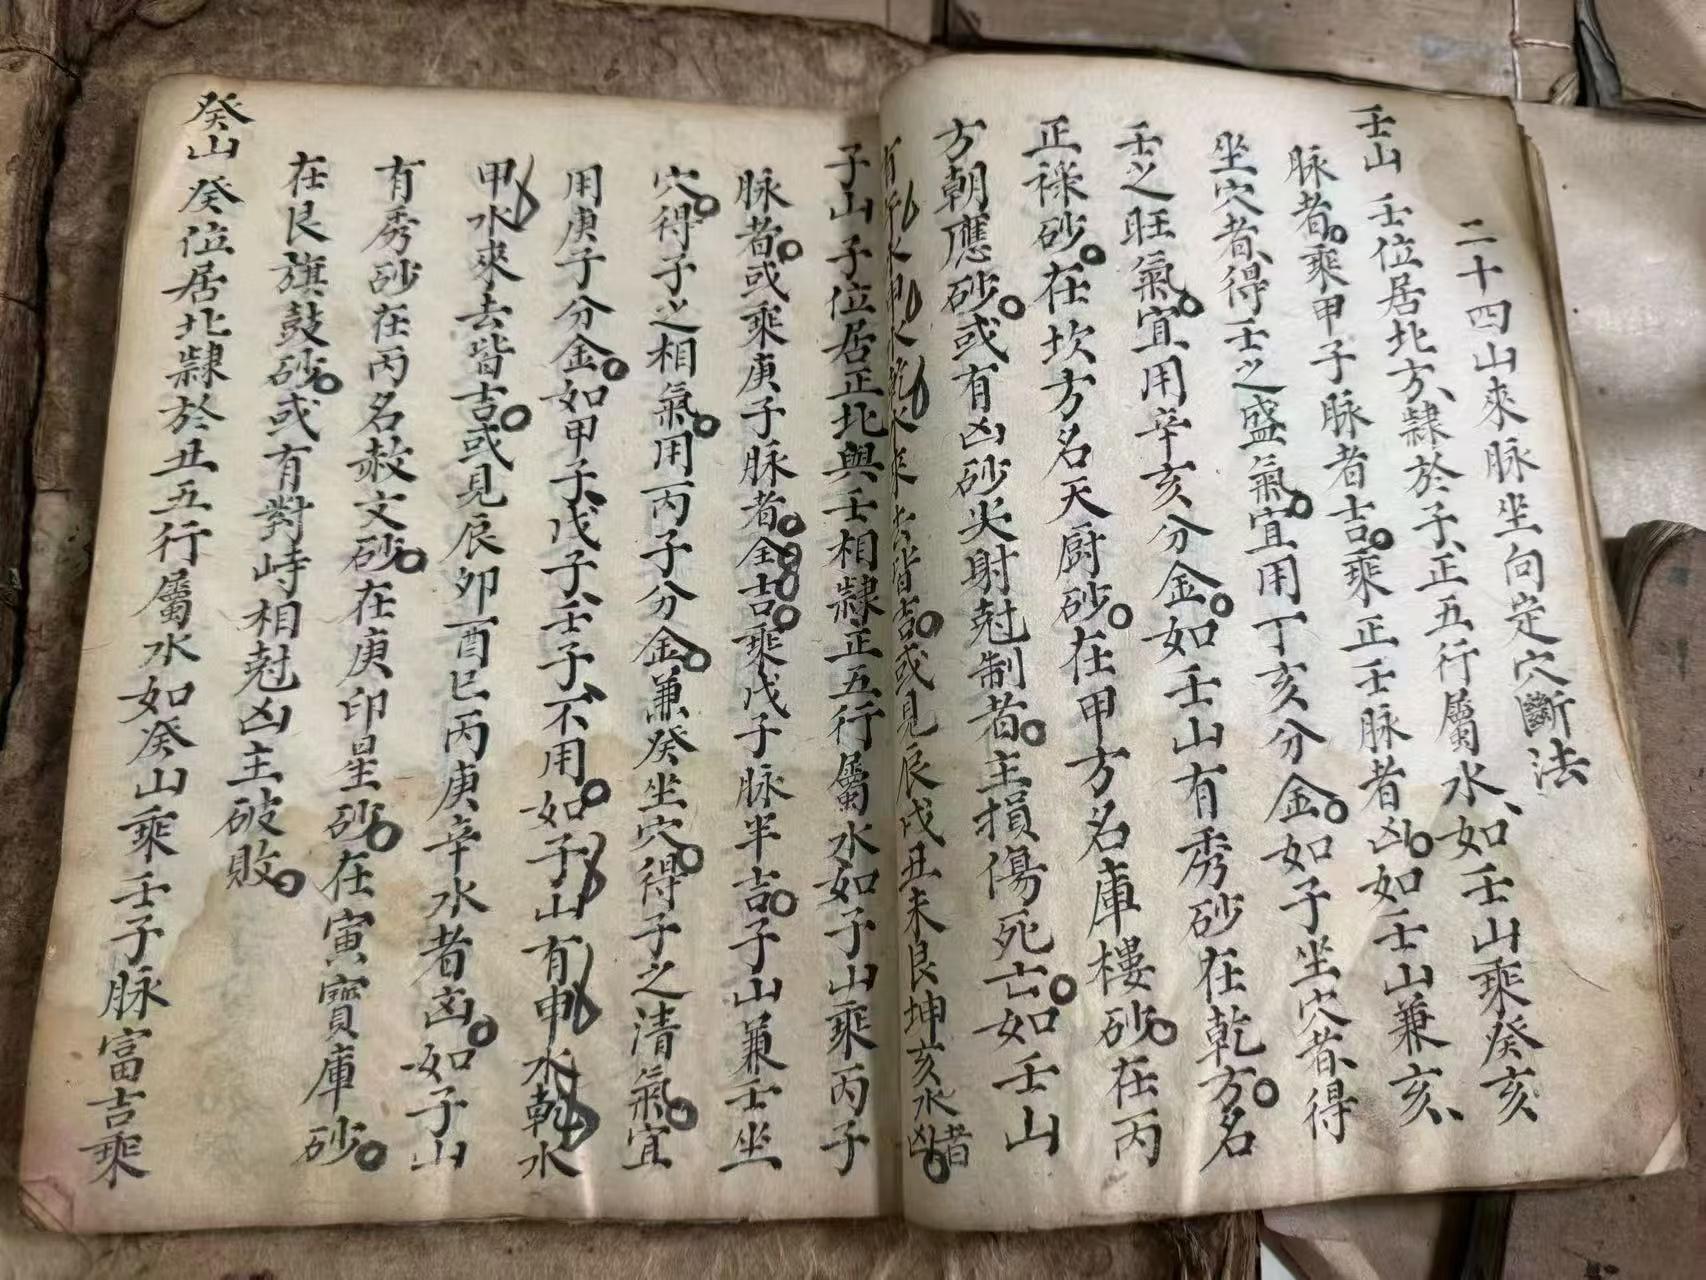 二十四山來脉坐向定穴斷法
壬山 壬位居北方、隸於子、正五行屬水、如壬山乘癸亥
脉者。乘甲子脉者吉。乘正壬脉者凶。如壬山兼亥、
坐穴者、得壬之盛氣。宜用丁亥分金。如子坐穴者、得
壬之旺氣。宜用辛亥分金。如壬山有秀砂在乾方。名
正祿砂。在坎方名天厨砂。在甲方名庫樓砂。在丙
方朝應砂。或有凶砂尖射尅制者。主損傷死亡。如壬山
水甲水乾水來去皆吉。或見辰戌丑未艮坤亥水者凶。
子山 子位居正北與壬相隸正五行屬水如子山乘丙子
脉者。或乘庚子脉者。全吉。乘戊子脉半吉。子山兼壬坐
穴。得子之相氣。用丙子分金。兼癸坐穴。得子之清氣。宜
用庚子分金。如甲子、戊子、壬子、不用。如子山有申水乾水
甲水來去皆吉。或見辰卯酉巳丙庚辛水者凶。如子山
有秀砂在丙名赦文砂。在庚印星砂。在寅寶庫砂。
在艮旗鼓砂。或有對峙相尅凶主破敗。
癸山 癸位居北隸於丑五行屬水如癸山乘壬子脉富吉乘